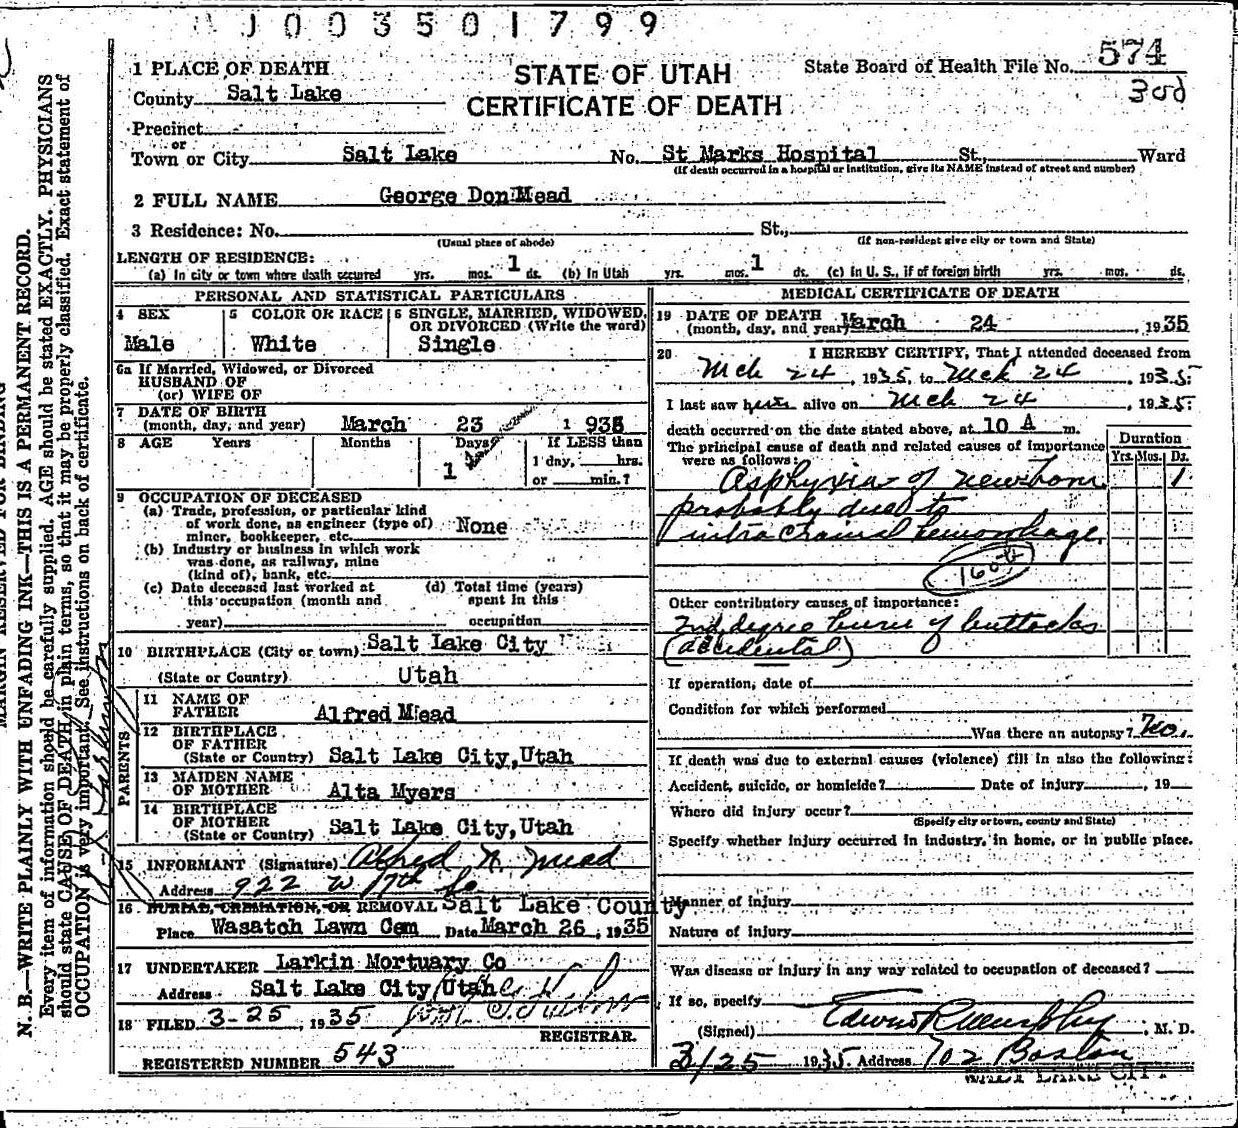 J 0 0 3 5 0 1 7 9 9
574
300
STATE OF UTAH
CERTIFICATE OF DEATH
State Board of Health File No.
1 PLACE OF DEATH
County Salt Lake
Precinct
or
Town or City Salt Lake No. St Marks Hospital St., Ward
(If death occurred in a hospital or institution, give its NAME instead of street and number)
2 FULL NAME George Don Mead
3 Residence: No. St.,
(Usual place of abode) (If non-resident give city or town and State)
LENGTH OF RESIDENCE:
(a) In city or town where death occurred yrs. mos. 1 ds. (b) In Utah yrs. mos. 1 ds. (c) In U. S., if of foreign birth yrs. mos. ds.
PERSONAL AND STATISTICAL PARTICULARS
4 SEX
Male
5 COLOR OR RACE
White
6 SINGLE, MARRIED, WIDOWED, OR DIVORCED (Write the word)
Single
6a If Married, Widowed, or Divorced
HUSBAND OF
(or) WIFE OF
7 DATE OF BIRTH
(month, day, and year) March 23 1935
8 AGE Years Months Days If LESS than
1 1 day, hrs.
or min.?
9 OCCUPATION OF DECEASED
(a) Trade, profession, or particular kind
of work done, as engineer (type of)
miner, bookkeeper, etc. None
(b) Industry or business in which work
was done, as railway, mine
(kind of), bank, etc.
(c) Date deceased last worked at
this occupation (month and
year)
(d) Total time (years)
spent in this
occupation
10 BIRTHPLACE (City or town) Salt Lake City
(State or Country) Utah
PARENTS
11 NAME OF
FATHER Alfred Mead
12 BIRTHPLACE
OF FATHER
(State or Country) Salt Lake City, Utah
13 MAIDEN NAME
OF MOTHER Alta Myers
14 BIRTHPLACE
OF MOTHER
(State or Country) Salt Lake City, Utah
15 INFORMANT (Signature) Alfred N. Mead
Address 922 W 17th So
16 BURIAL, CREMATION, OR REMOVAL Salt Lake County
Place Wasatch Lawn Cem Date March 26, 1935
17 UNDERTAKER Larkin Mortuary Co
Address Salt Lake City Utah
18 FILED 3-25, 1935
REGISTRAR.
REGISTERED NUMBER 543
MEDICAL CERTIFICATE OF DEATH
19 DATE OF DEATH
(month, day, and year) March 24, 1935
20 I HEREBY CERTIFY, That I attended deceased from
Mch 24, 1935, to Mch 24, 1935.
I last saw him alive on Mch 24, 1935.
death occurred on the date stated above, at 10 A m.
The principal cause of death and related causes of importance
were as follows:
Duration
Yrs. Mos. Ds.
Asphyxia of newborn 1
probably due to
intracranial hemorrhage.
160a
Other contributory causes of importance:
2nd degree burn of buttocks
(accidental)
If operation, date of
Condition for which performed
Was there an autopsy? No.
If death was due to external causes (violence) fill in also the following:
Accident, suicide, or homicide? Date of injury, 19
Where did injury occur?
(Specify city or town, county and State)
Specify whether injury occurred in industry, in home, or in public place.
Manner of injury
Nature of injury
Was disease or injury in any way related to occupation of deceased?
If so, specify
(Signed) Edwin R Murphy, M. D.
3/25 1935. Address 702 Boston
SALT LAKE CITY
MARGIN RESERVED FOR BINDING
N. B.—WRITE PLAINLY WITH UNFADING INK—THIS IS A PERMANENT RECORD.
Every item of information should be carefully supplied. AGE should be stated EXACTLY. PHYSICIANS
should state CAUSE OF DEATH in plain terms, so that it may be properly classified. Exact statement of
OCCUPATION is very important. See instructions on back of certificate.